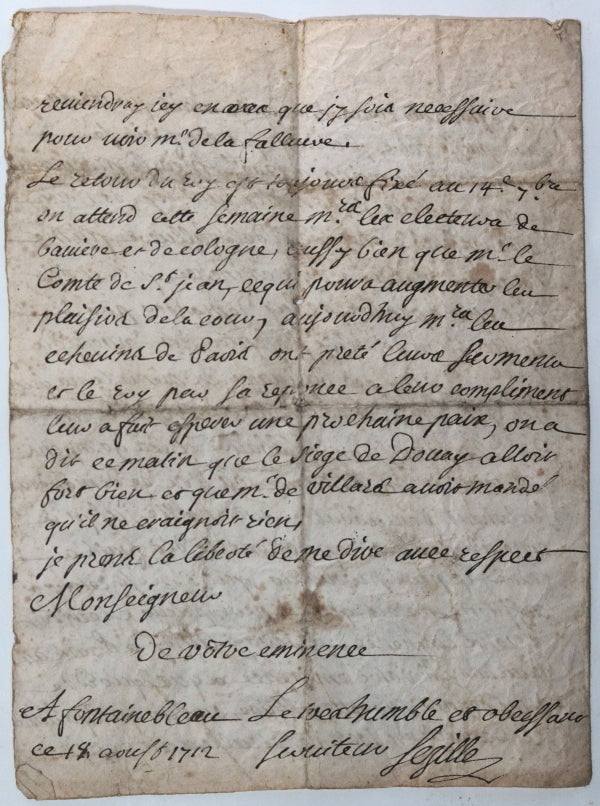 reviendray icy en cas que j'y sois necessaire
pour voir mr. de la falluere.
Le retour du roy est toujours fixé au 14e. 7bre
on attend cette semaine mrs. les electeurs de
baviere et de cologne, aussy bien que mr. le
Comte de St. jean, ce qui pourra augmenter les
plaisirs de la cour, aujourdhuy mrs. les
echevins de Paris ont preté leurs serments
et le roy par sa reponce a leur compliment
leur a fait esperer une prochaine paix, on a
dit ce matin que le siege de Douay alloit
fort bien et que mr. de villars avoit mandé
qu'il ne craignoit rien,
je prens la liberté de me dire avec respect
Monseigneur
De vôtre eminence
A fontainebleau Le tres humble et obeissant
ce 18 aoust 1712 serviteur